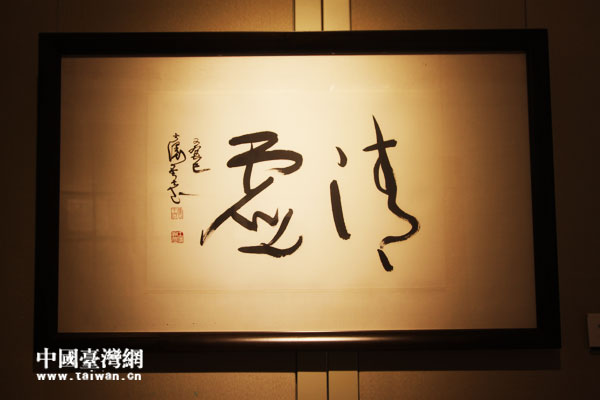 清虚
癸巳
中國臺灣網
www.taiwan.cn